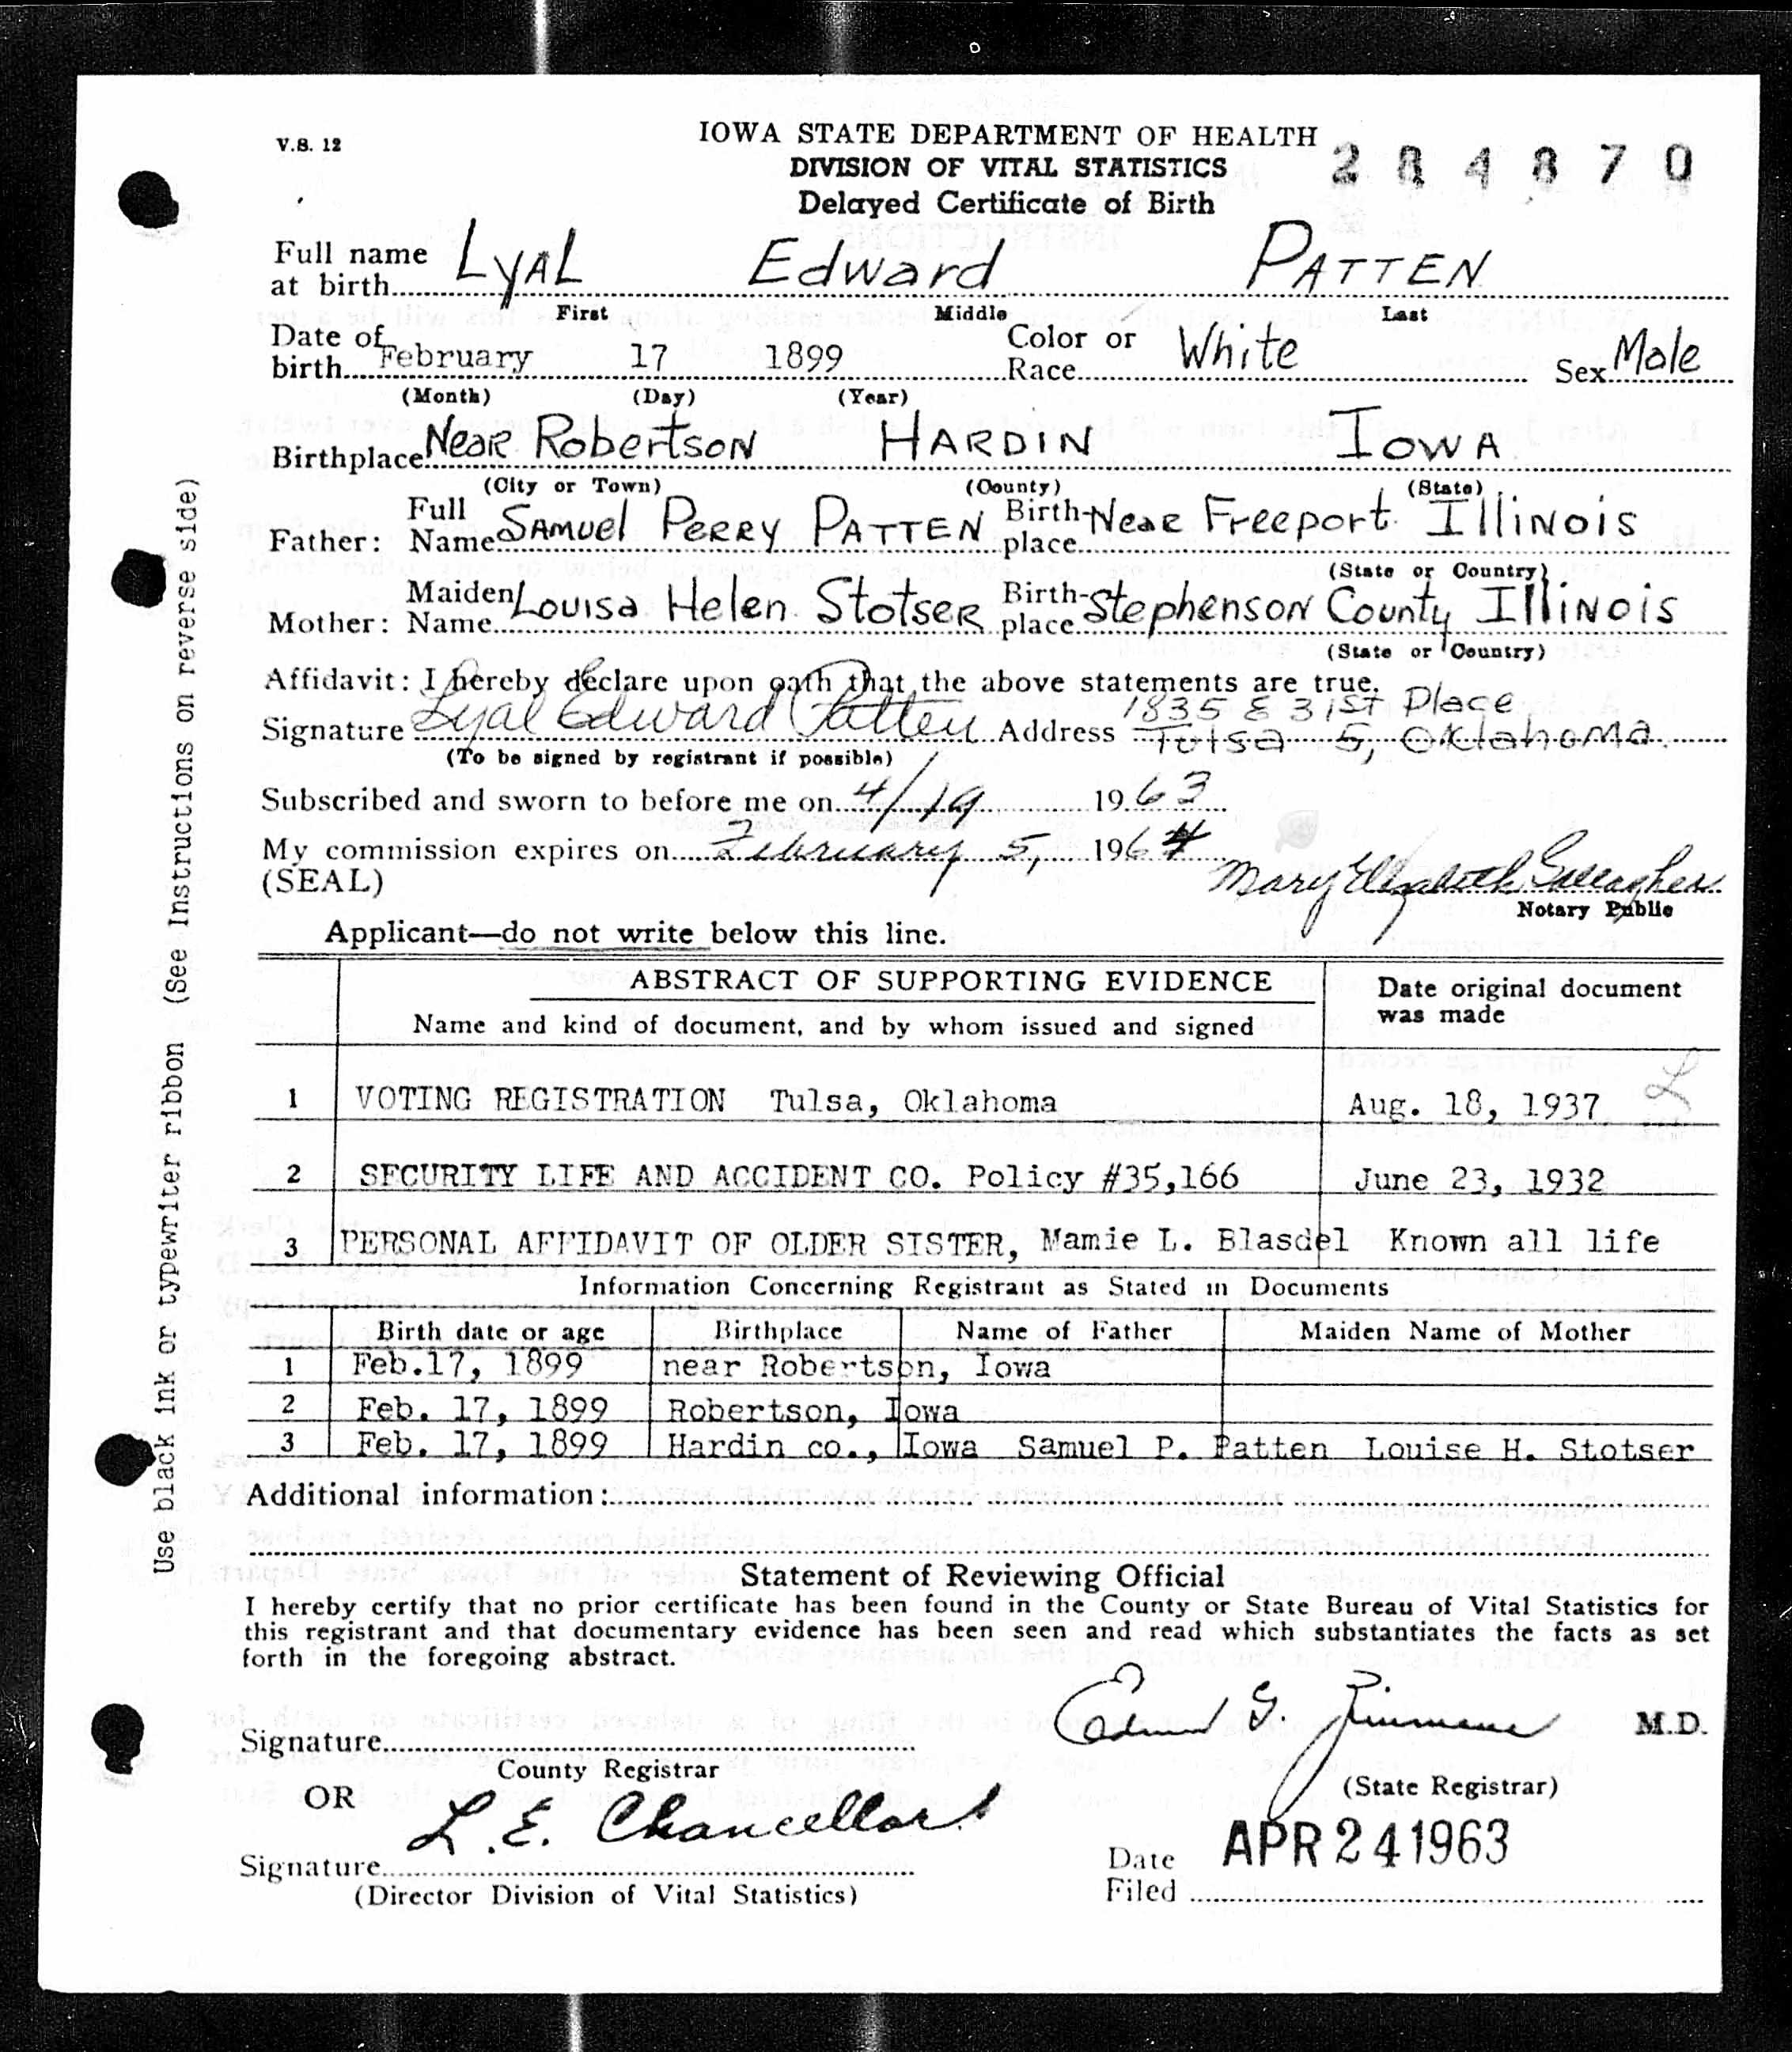 V.S. 12
IOWA STATE DEPARTMENT OF HEALTH
DIVISION OF VITAL STATISTICS
284870
Delayed Certificate of Birth
Full name
at birth LyAL Edward PATTEN
First Middle Last
Date of
birth February 17 1899 Color or Race White Sex Male
(Month) (Day) (Year)
Birthplace Near Robertson HARDIN IOWA
(City or Town) (County) (State)
Father: Full Name SAMUEl PERRY PATTEN Birth-place Near Freeport Illinois
(State or Country)
Mother: Maiden Name Louisa Helen Stotser Birth-place Stephenson County Illinois
(State or Country)
Affidavit: I hereby declare upon oath that the above statements are true.
Signature Lyal Edward Patten Address 1835 E 31st Place
Tulsa 5, Oklahoma.
(To be signed by registrant if possible)
Subscribed and sworn to before me on 4/19 1963
My commission expires on February 5, 1964
(SEAL)
Mary Elizabeth Gallagher
Notary Public
Applicant—do not write below this line.
ABSTRACT OF SUPPORTING EVIDENCE
Name and kind of document, and by whom issued and signed
Date original document
was made
L
1 VOTING REGISTRATION Tulsa, Oklahoma Aug. 18, 1937
2 SECURITY LIFE AND ACCIDENT CO. Policy #35,166 June 23, 1932
3 PERSONAL AFFIDAVIT OF OLDER SISTER, Mamie L. Blasdel Known all life
Information Concerning Registrant as Stated in Documents
Birth date or age Birthplace Name of Father Maiden Name of Mother
1 Feb.17, 1899 near Robertson, Iowa
2 Feb. 17, 1899 Robertson, Iowa
3 Feb. 17, 1899 Hardin co., Iowa Samuel P. Patten Louise H. Stotser
Additional information:
Statement of Reviewing Official
I hereby certify that no prior certificate has been found in the County or State Bureau of Vital Statistics for
this registrant and that documentary evidence has been seen and read which substantiates the facts as set
forth in the foregoing abstract.
Signature
County Registrar
G. M.D.
(State Registrar)
OR
Signature L. E. Chancellor
(Director Division of Vital Statistics)
Date
Filed APR 24 1963
Use black ink or typewriter ribbon (See Instructions on reverse side)